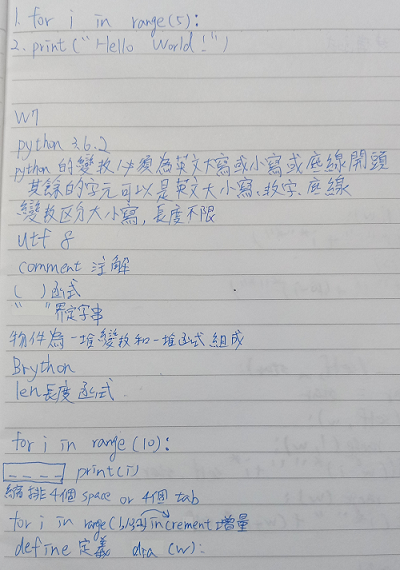 1. for i in range(5):
2. print("Hello World!")
W7
python 3.6.2
python 的變數必須為英文大寫或小寫或底線開頭
其餘的字元可以是英文大小寫、數字、底線
變數区分大小寫,長度不限
utf 8
comment 注解
( ) 函式
" " 界定字串
物件為一堆變數和一堆函式組成
Brython
len 長度函式
for i in range(10):
print(i)
縮排4個space or 4個tab
for i in range( increment 增量
define 定義 (w):